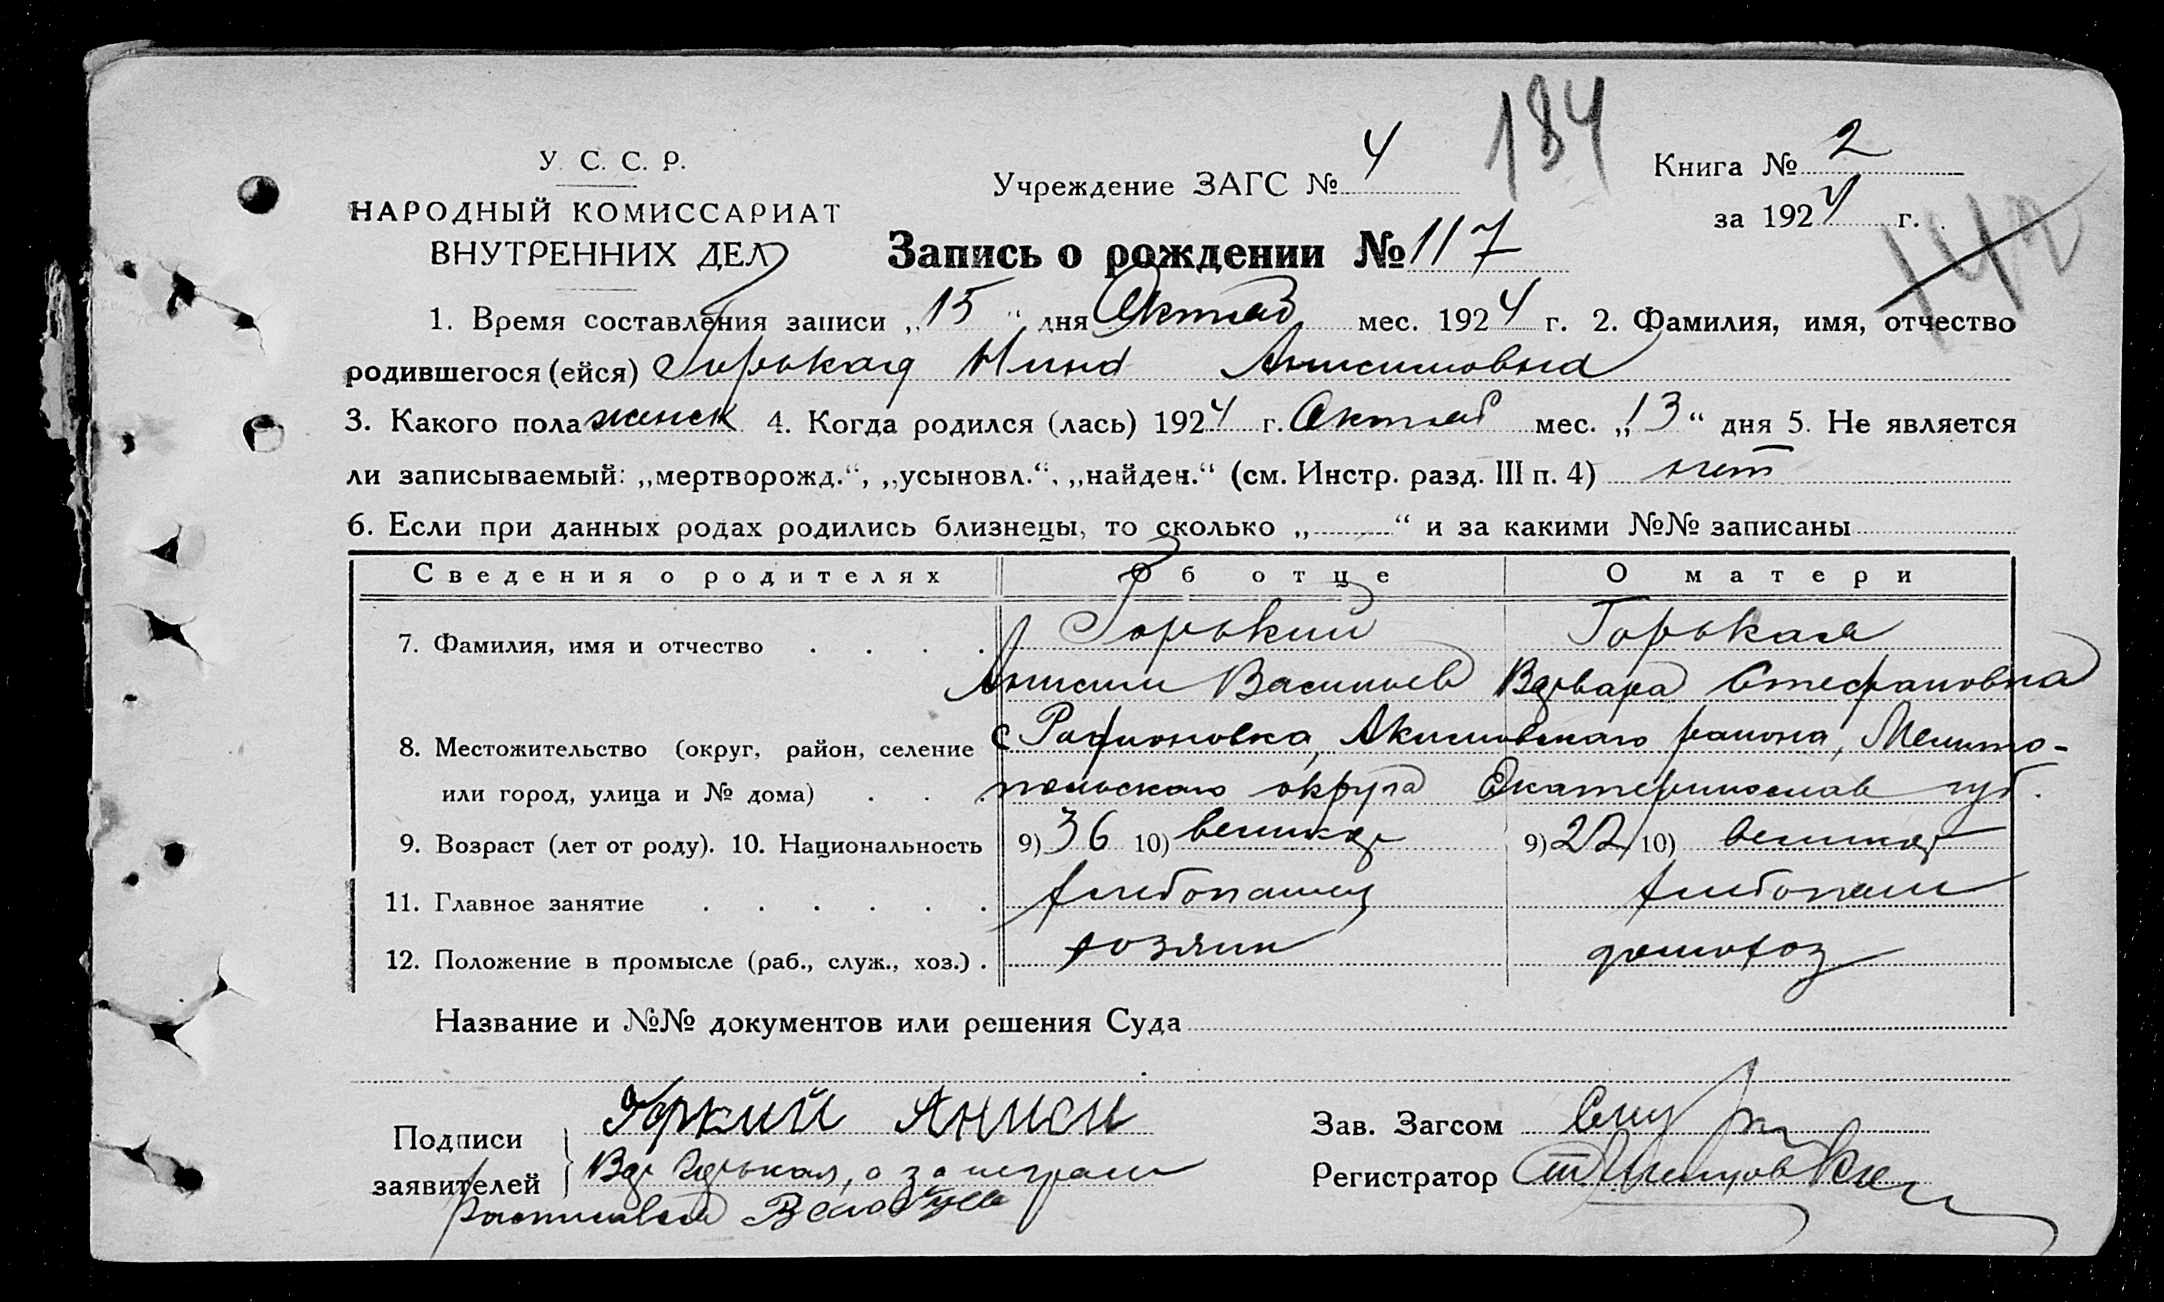 184
У. С. С. Р.
НАРОДНЫЙ КОМИССАРИАТ
ВНУТРЕННИХ ДЕЛ
Учреждение ЗАГС № 4
Книга № 2
за 1924 г.
142
Запись о рождении № 117
1. Время составления записи „15“ дня Октяб мес. 1924 г. 2. Фамилия, имя, отчество
родившегося (ейся) Горькая Нина Анисимовна
3. Какого пола женск 4. Когда родился (лась) 1924 г. Октяб мес. „13“ дня 5. Не является
ли записываемый: „мертворожд.“, „усыновл.“, „найден.“ (см. Инстр. разд. III п. 4) нет
6. Если при данных родах родились близнецы, то сколько „ “ и за какими №№ записаны
Сведения о родителях Об отце О матери
7. Фамилия, имя и отчество Горький Горькая
Анисим Васильев Варвара Стефановна
8. Местожительство (округ, район, селение с Акимовского района, Мелито-
или город, улица и № дома) польского округа Екатеринослав губ.
9. Возраст (лет от роду). 10. Национальность 9) 36 10) великор 9) 22 10) великор
11. Главное занятие хлебопашец хлебопаш
12. Положение в промысле (раб., служ., хоз.) хозяин домохоз
Название и №№ документов или решения Суда
Подписи заявителей Горкий Аниси
Вар Горькая, а за неграм
расписался
Зав. Загсом
Регистратор